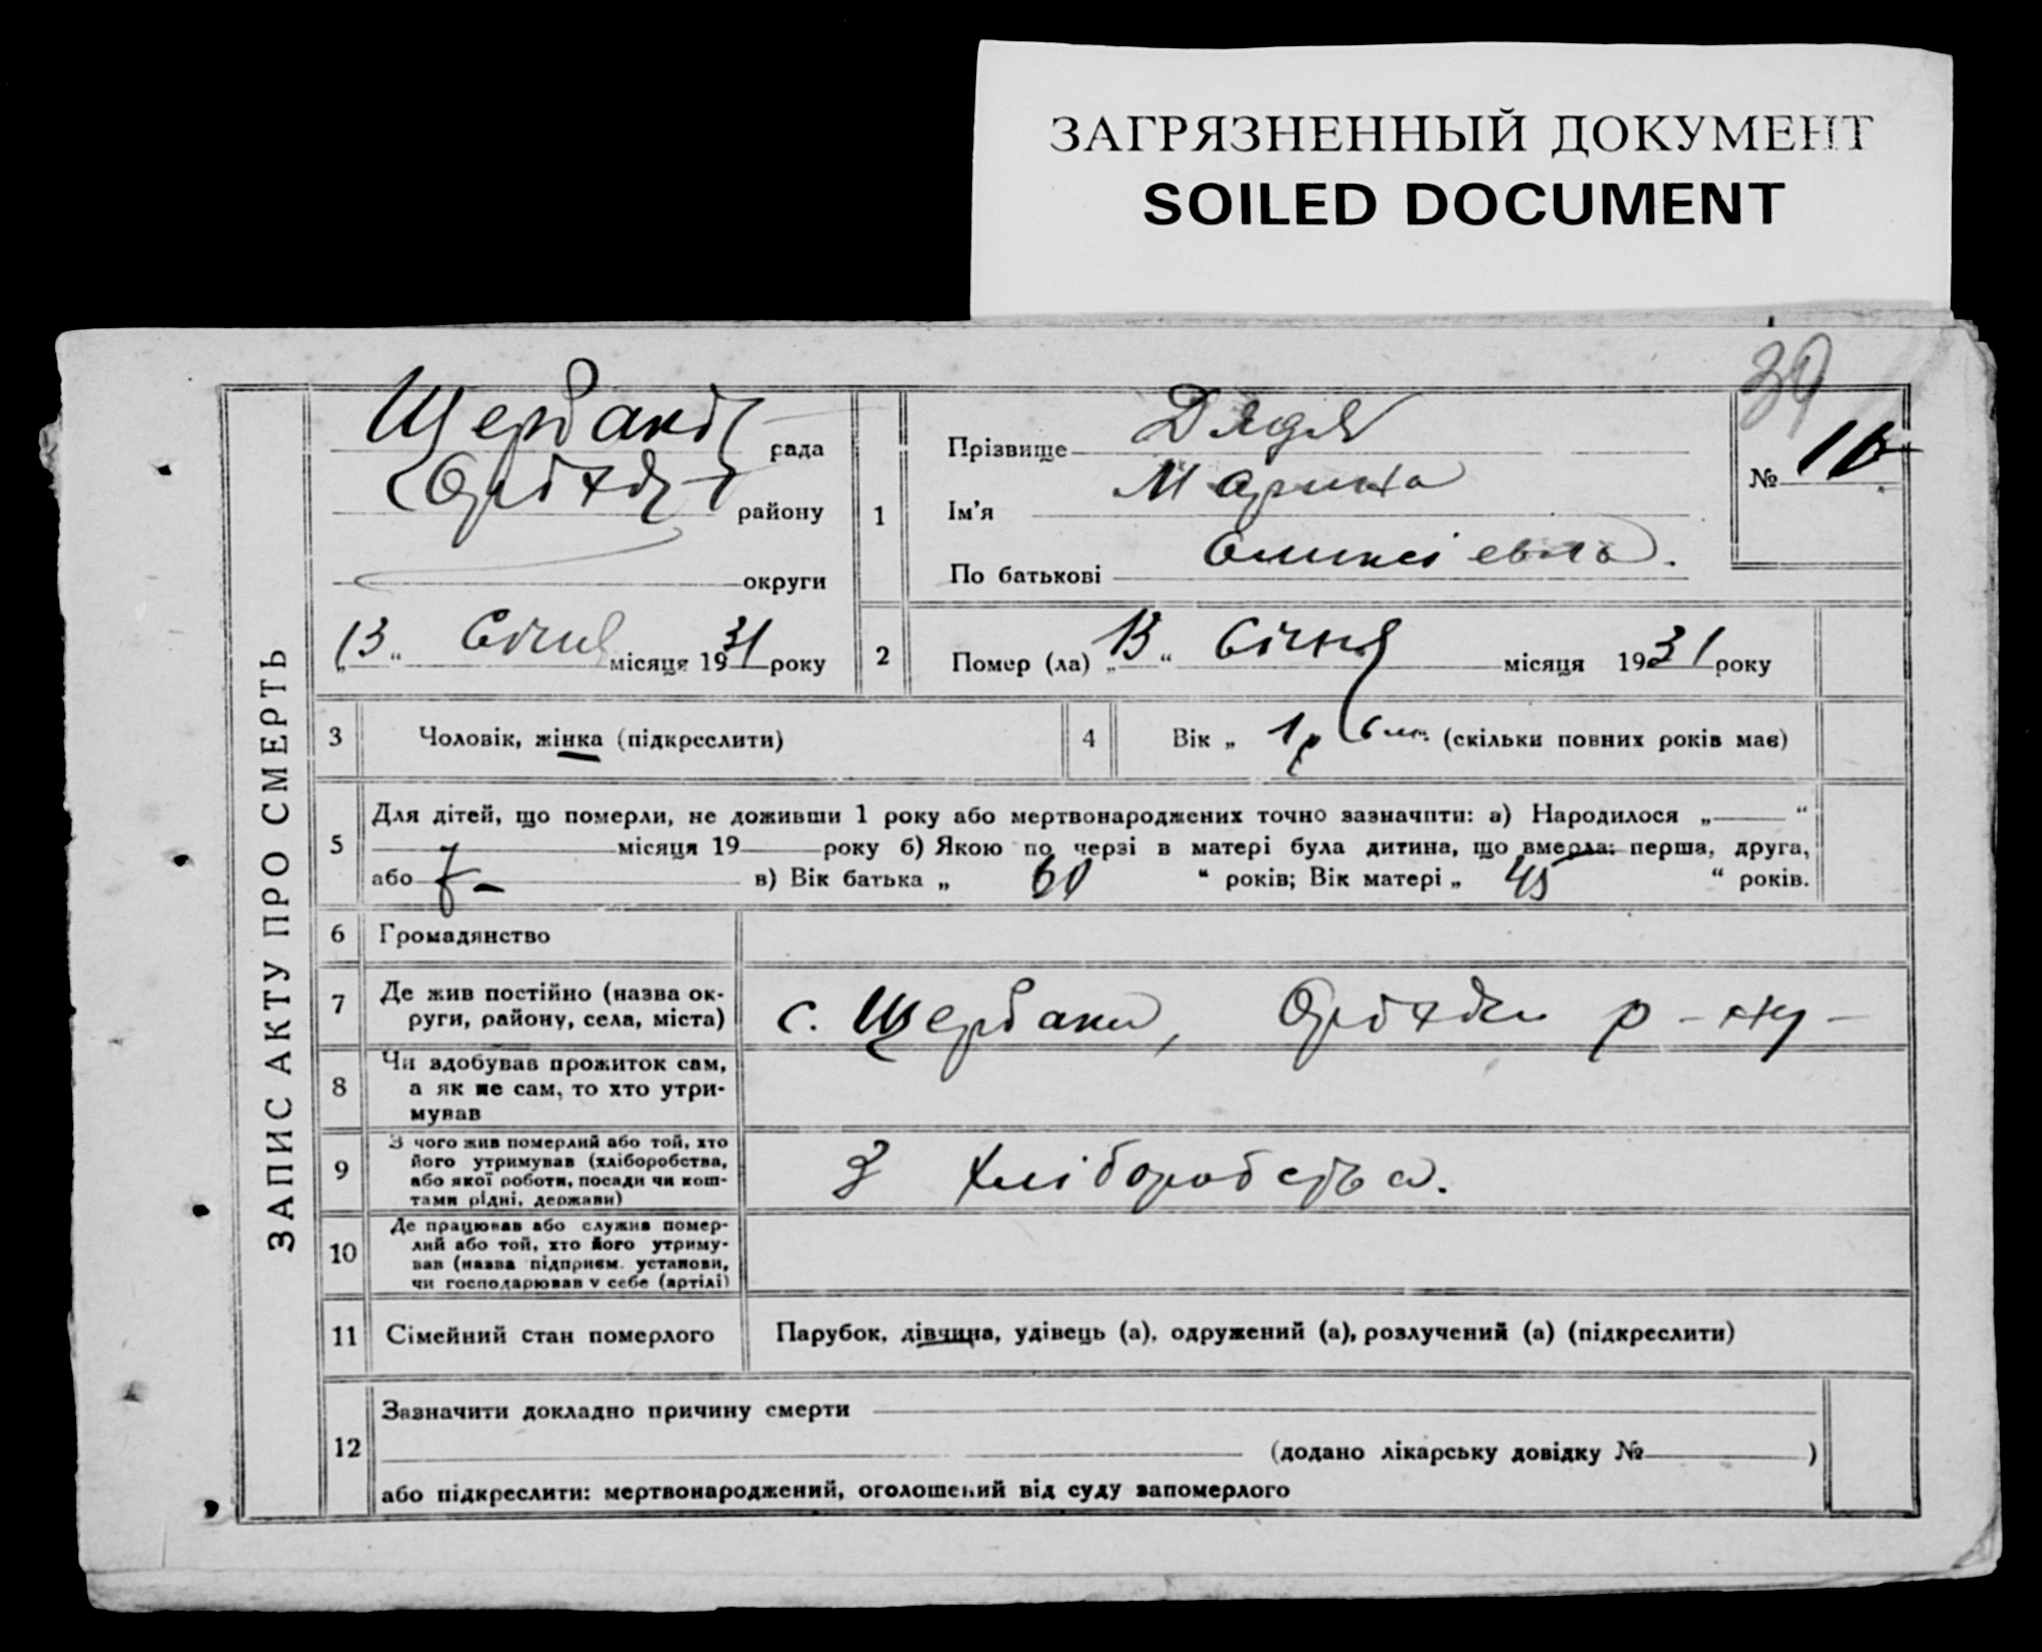 ЗАГРЯЗНЕННЫЙ ДОКУМЕНТ
SOILED DOCUMENT
39
ЗАПИС АКТУ ПРО СМЕРТЬ
Щербаків рада
району
округи
„13“ Січня місяця 1931 року
1
Прізвище Дядя
Ім’я Марина
По батькові
№
2
Помер (ла) „13“ Січня місяця 1931 року
3
Чоловік, жінка (підкреслити)
4
Вік „ 1 р 6 (скільки повних років має)
5
Для дітей, що померли, не доживши 1 року або мертвонароджених точно зазначити: а) Народилося „ “
місяця 19 року б) Якою по черзі в матері була дитина, що вмерла: перша, друга,
або 7 - в) Вік батька „ 60 “ років; Вік матері „ 45 “ років.
6
Громадянство
7
Де жив постійно (назва ок-
руги, району, села, міста)
с. Щербаки, Оріхів р-ну
8
Чи здобував прожиток сам,
а як не сам, то хто утри-
мував
9
З чого жив померлий або той, хто
його утримував (хліборобства,
або якої роботи, посади чи кош-
тами рідні, держави)
З хліборобства.
10
Де працював або служив помер-
лий або той, хто його утриму-
вав (назва підприєм. установи,
чи господарював у себе (артілі)
11
Сімейний стан померлого
Парубок, дівчина, удівець (а), одружений (а), розлучений (а) (підкреслити)
12
Зазначити докладно причину смерти
(додано лікарську довідку № )
або підкреслити: мертвонароджений, оголошений від суду запомерлого